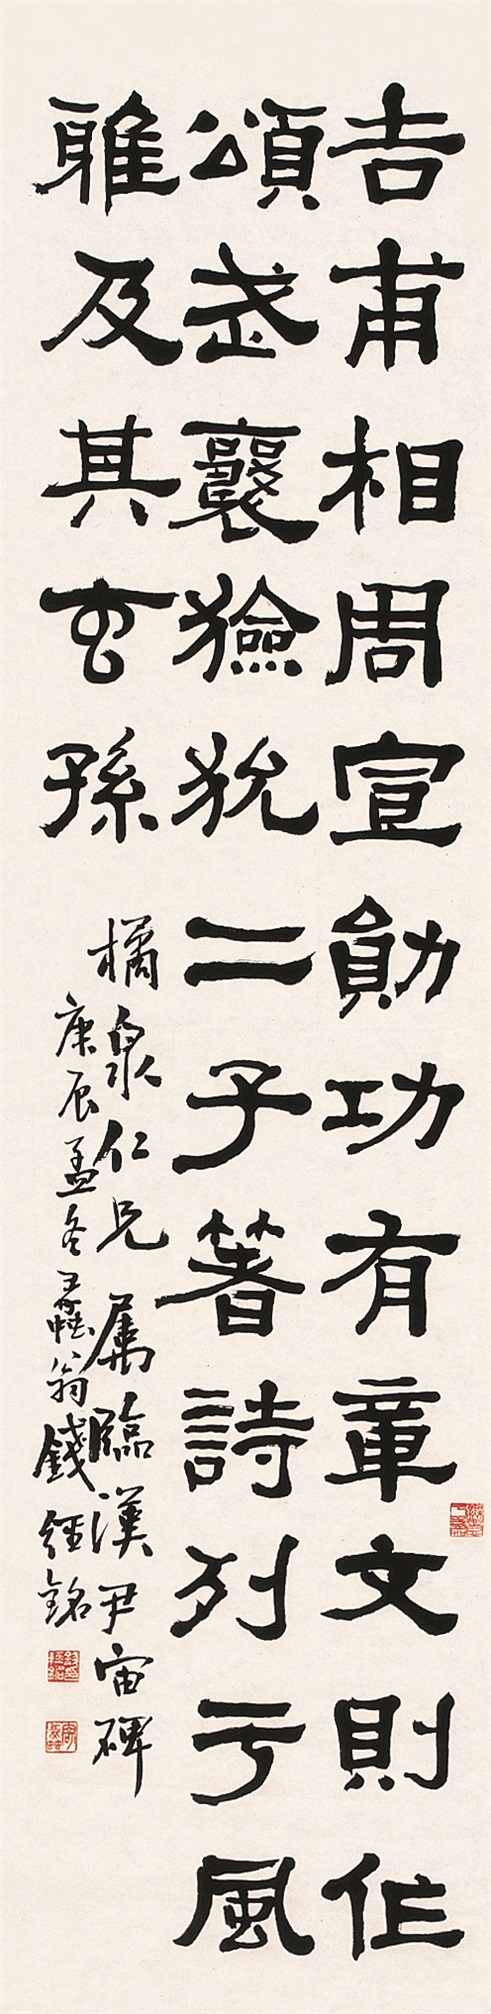 吉甫相周宣勛功有章文則作
頌武襄獫狁二子著詩列于風
雅及其玄孫
橘泉仁兄屬臨漢尹宙碑
庚辰孟冬
翁錢經銘